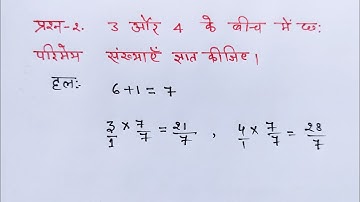 प्रश्न-२. 3 और 4 के बीच में छः
परिमेय संख्याएँ ज्ञात कीजिए।
हल:-
6+1=7
3/1 × 7/7 = 21/7 , 4/1 × 7/7 = 28/7